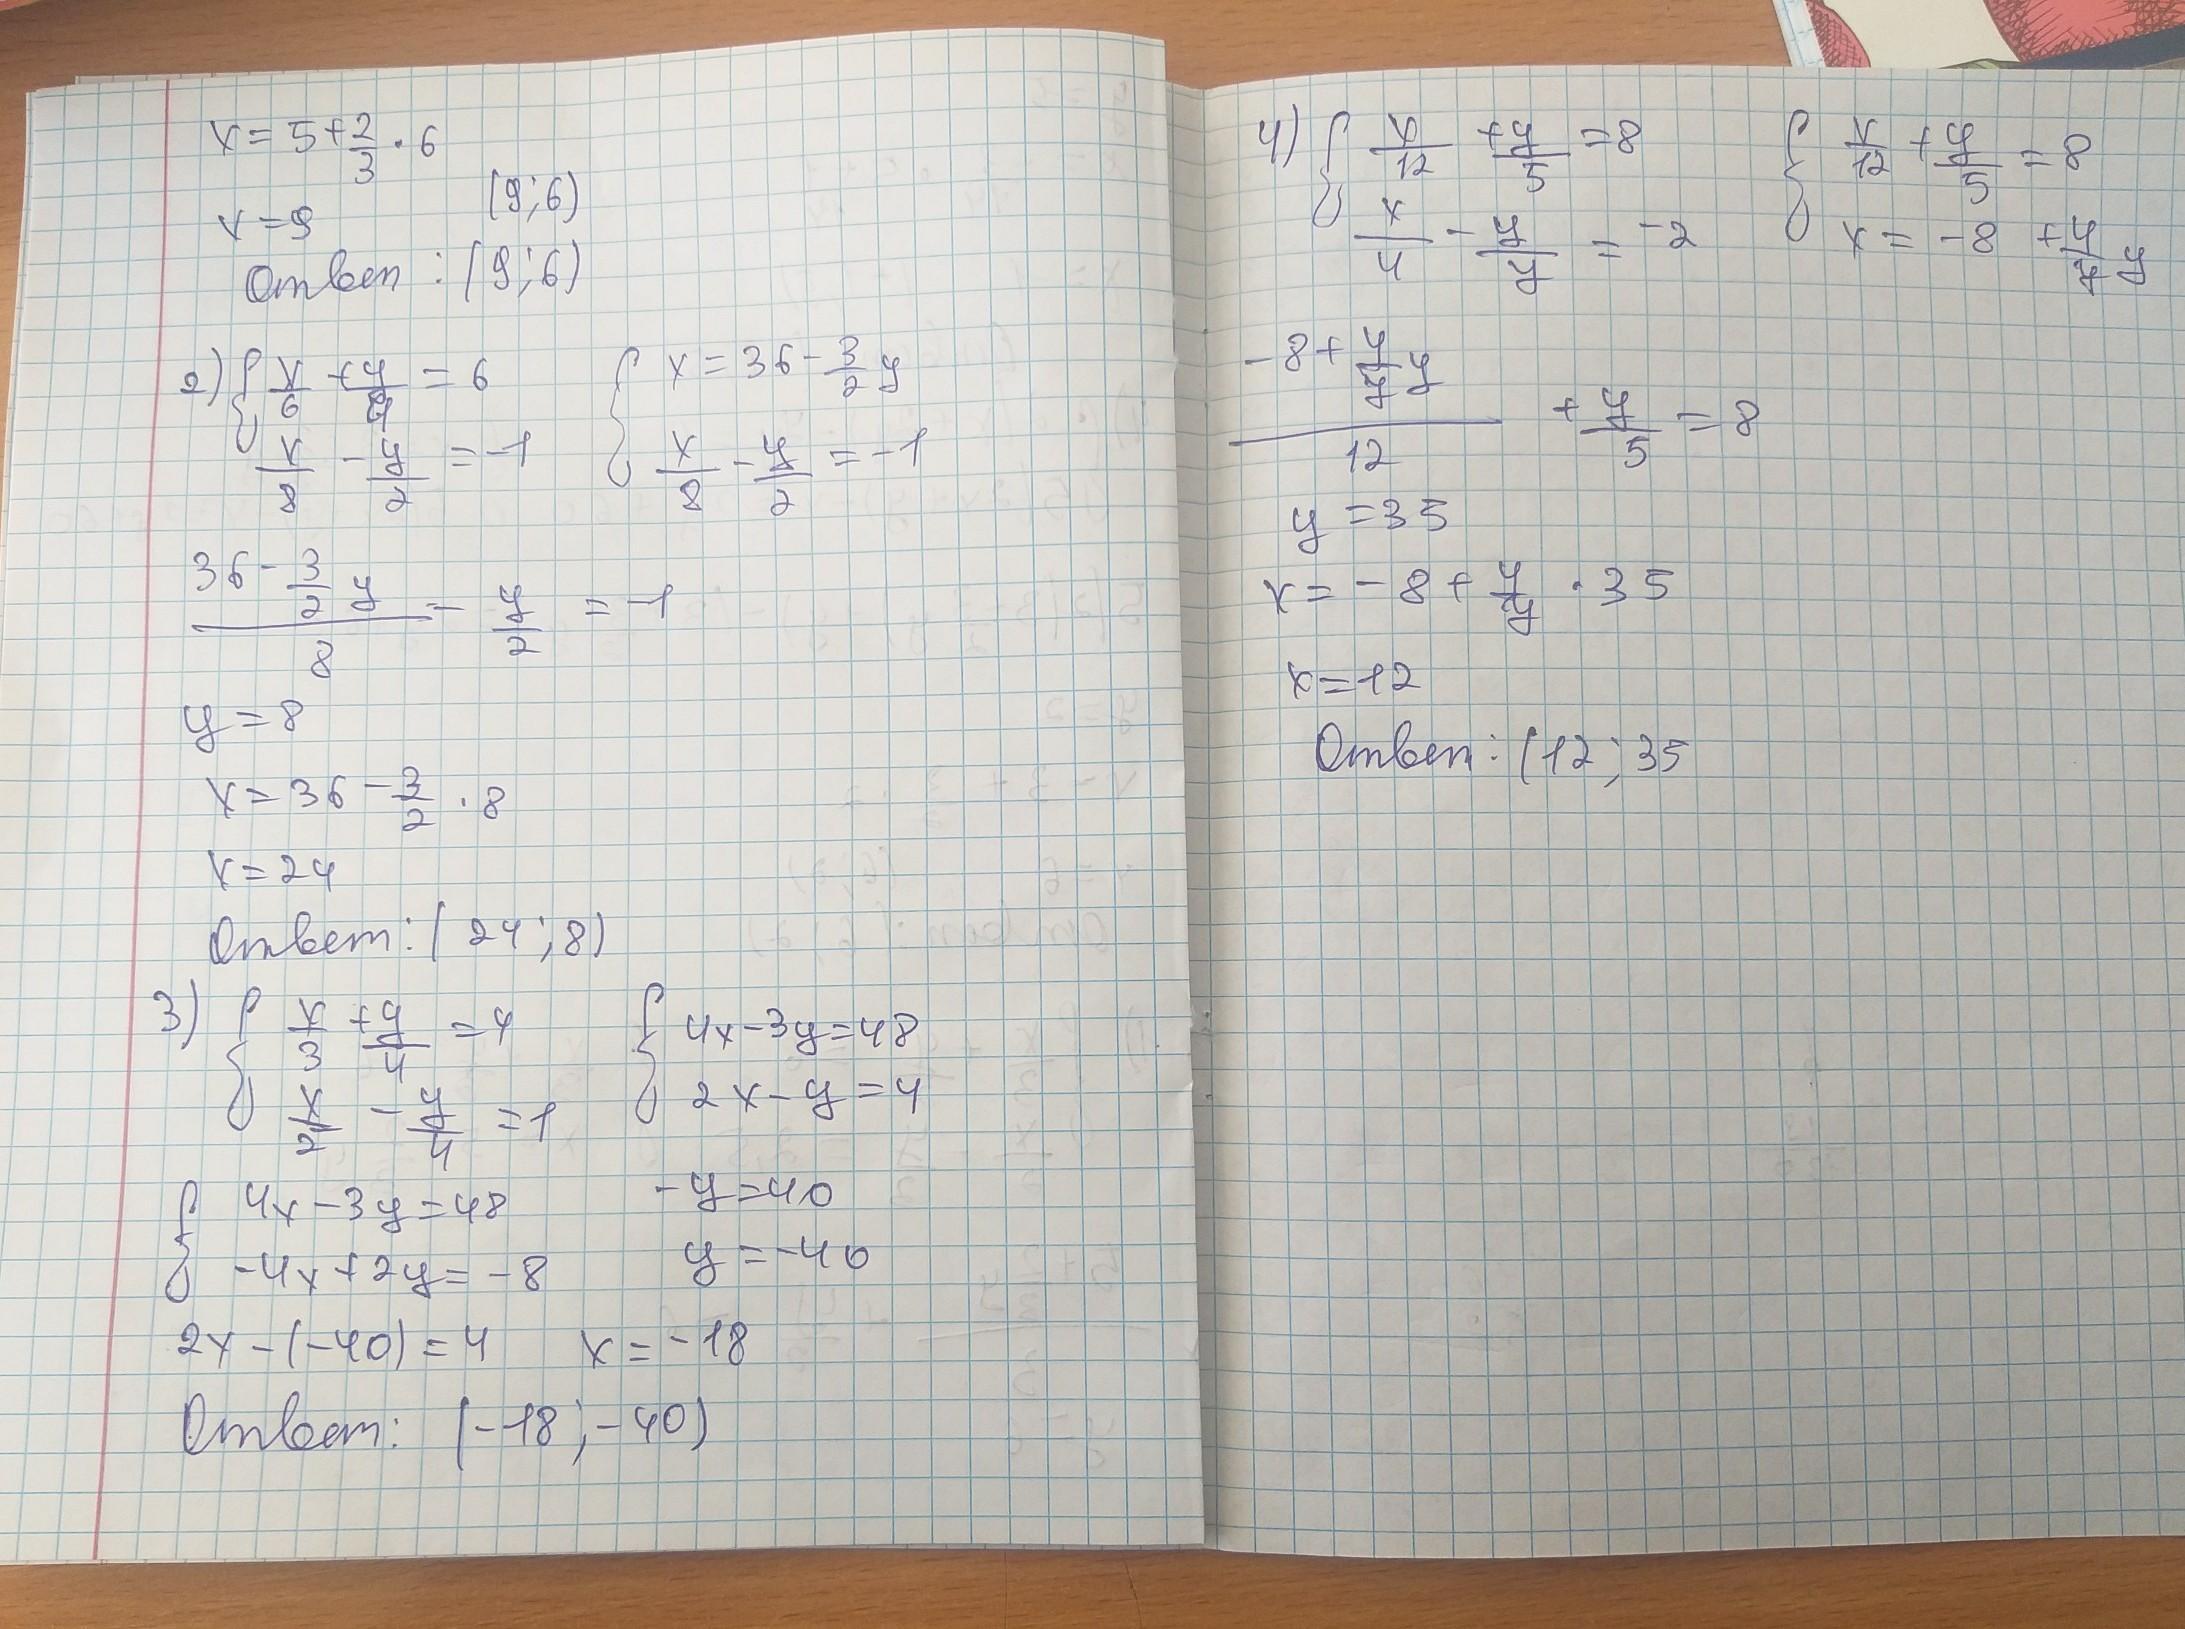 x = 5 + 2/3 · 6
x = 9 (9; 6)
Ответ: (9; 6)
2) { x/6 + y/4 = 6 { x = 36 - 3/2 y
x/8 - y/2 = -1 x/8 - y/2 = -1
(36 - 3/2 y)/8 - y/2 = -1
y = 8
x = 36 - 3/2 · 8
x = 24
Ответ: (24; 8)
3) { x/3 + y/4 = 4 { 4x - 3y = 48
x/2 - y/4 = 1 2x - y = 4
{ 4x - 3y = 48 -y = 40
-4x + 2y = -8 y = -40
2x - (-40) = 4 x = -18
Ответ: (-18; -40)
4) { x/12 + y/5 = 8 { x/12 + y/5 = 8
x/4 - y/y = -2 x = -8 + 4/7 y
(-8 + 4/7 y)/12 + y/5 = 8
y = 35
x = -8 + 4/7 · 35
x = 12
Ответ: (12; 35